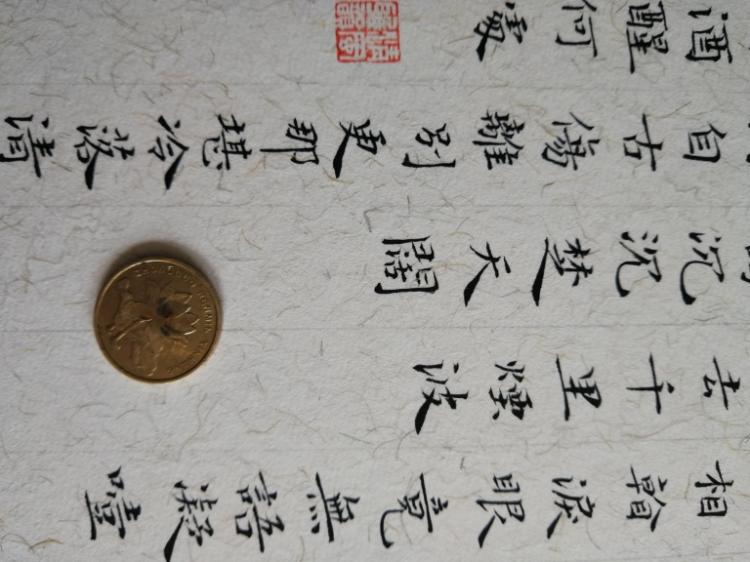 相看淚眼竟無語凝噎
去千里煙波
沉沉楚天闊
自古傷離別更那堪冷落清
酒醒何處